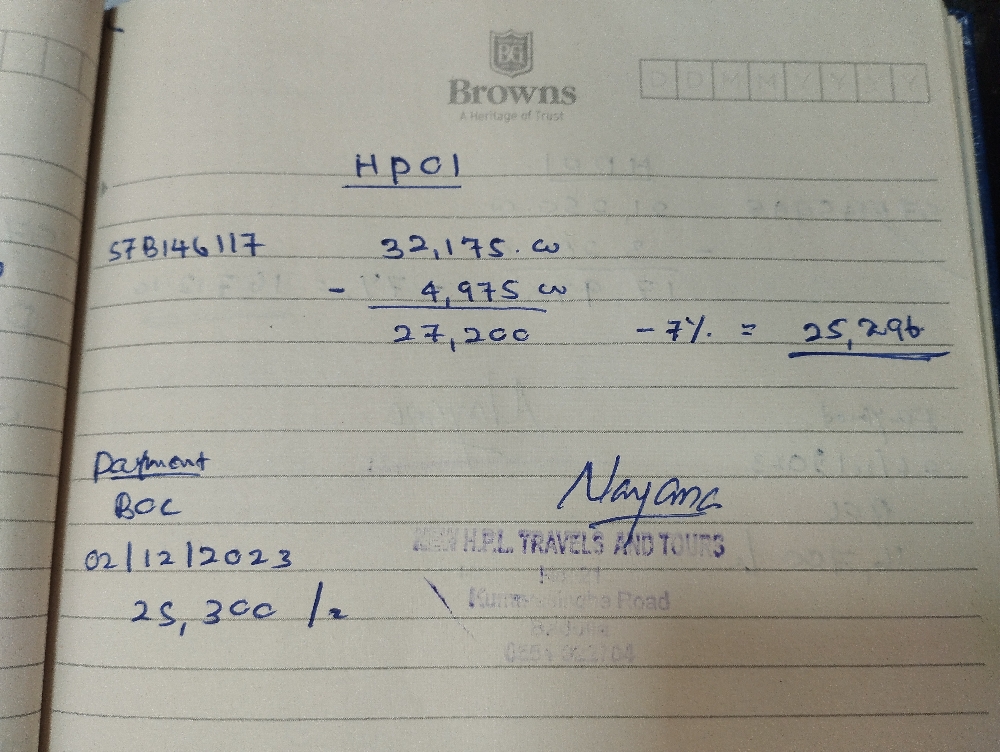 BG
Browns
A Heritage of Trust
D D M M Y Y Y Y
HPCl
57B146117 32,175.00
- 4,975 00
27,200 - 7% = 25,296
Payment
BOC
02/12/2023
25,300/=
Nayana
NEW H.P.L. TRAVELS AND TOURS
Road